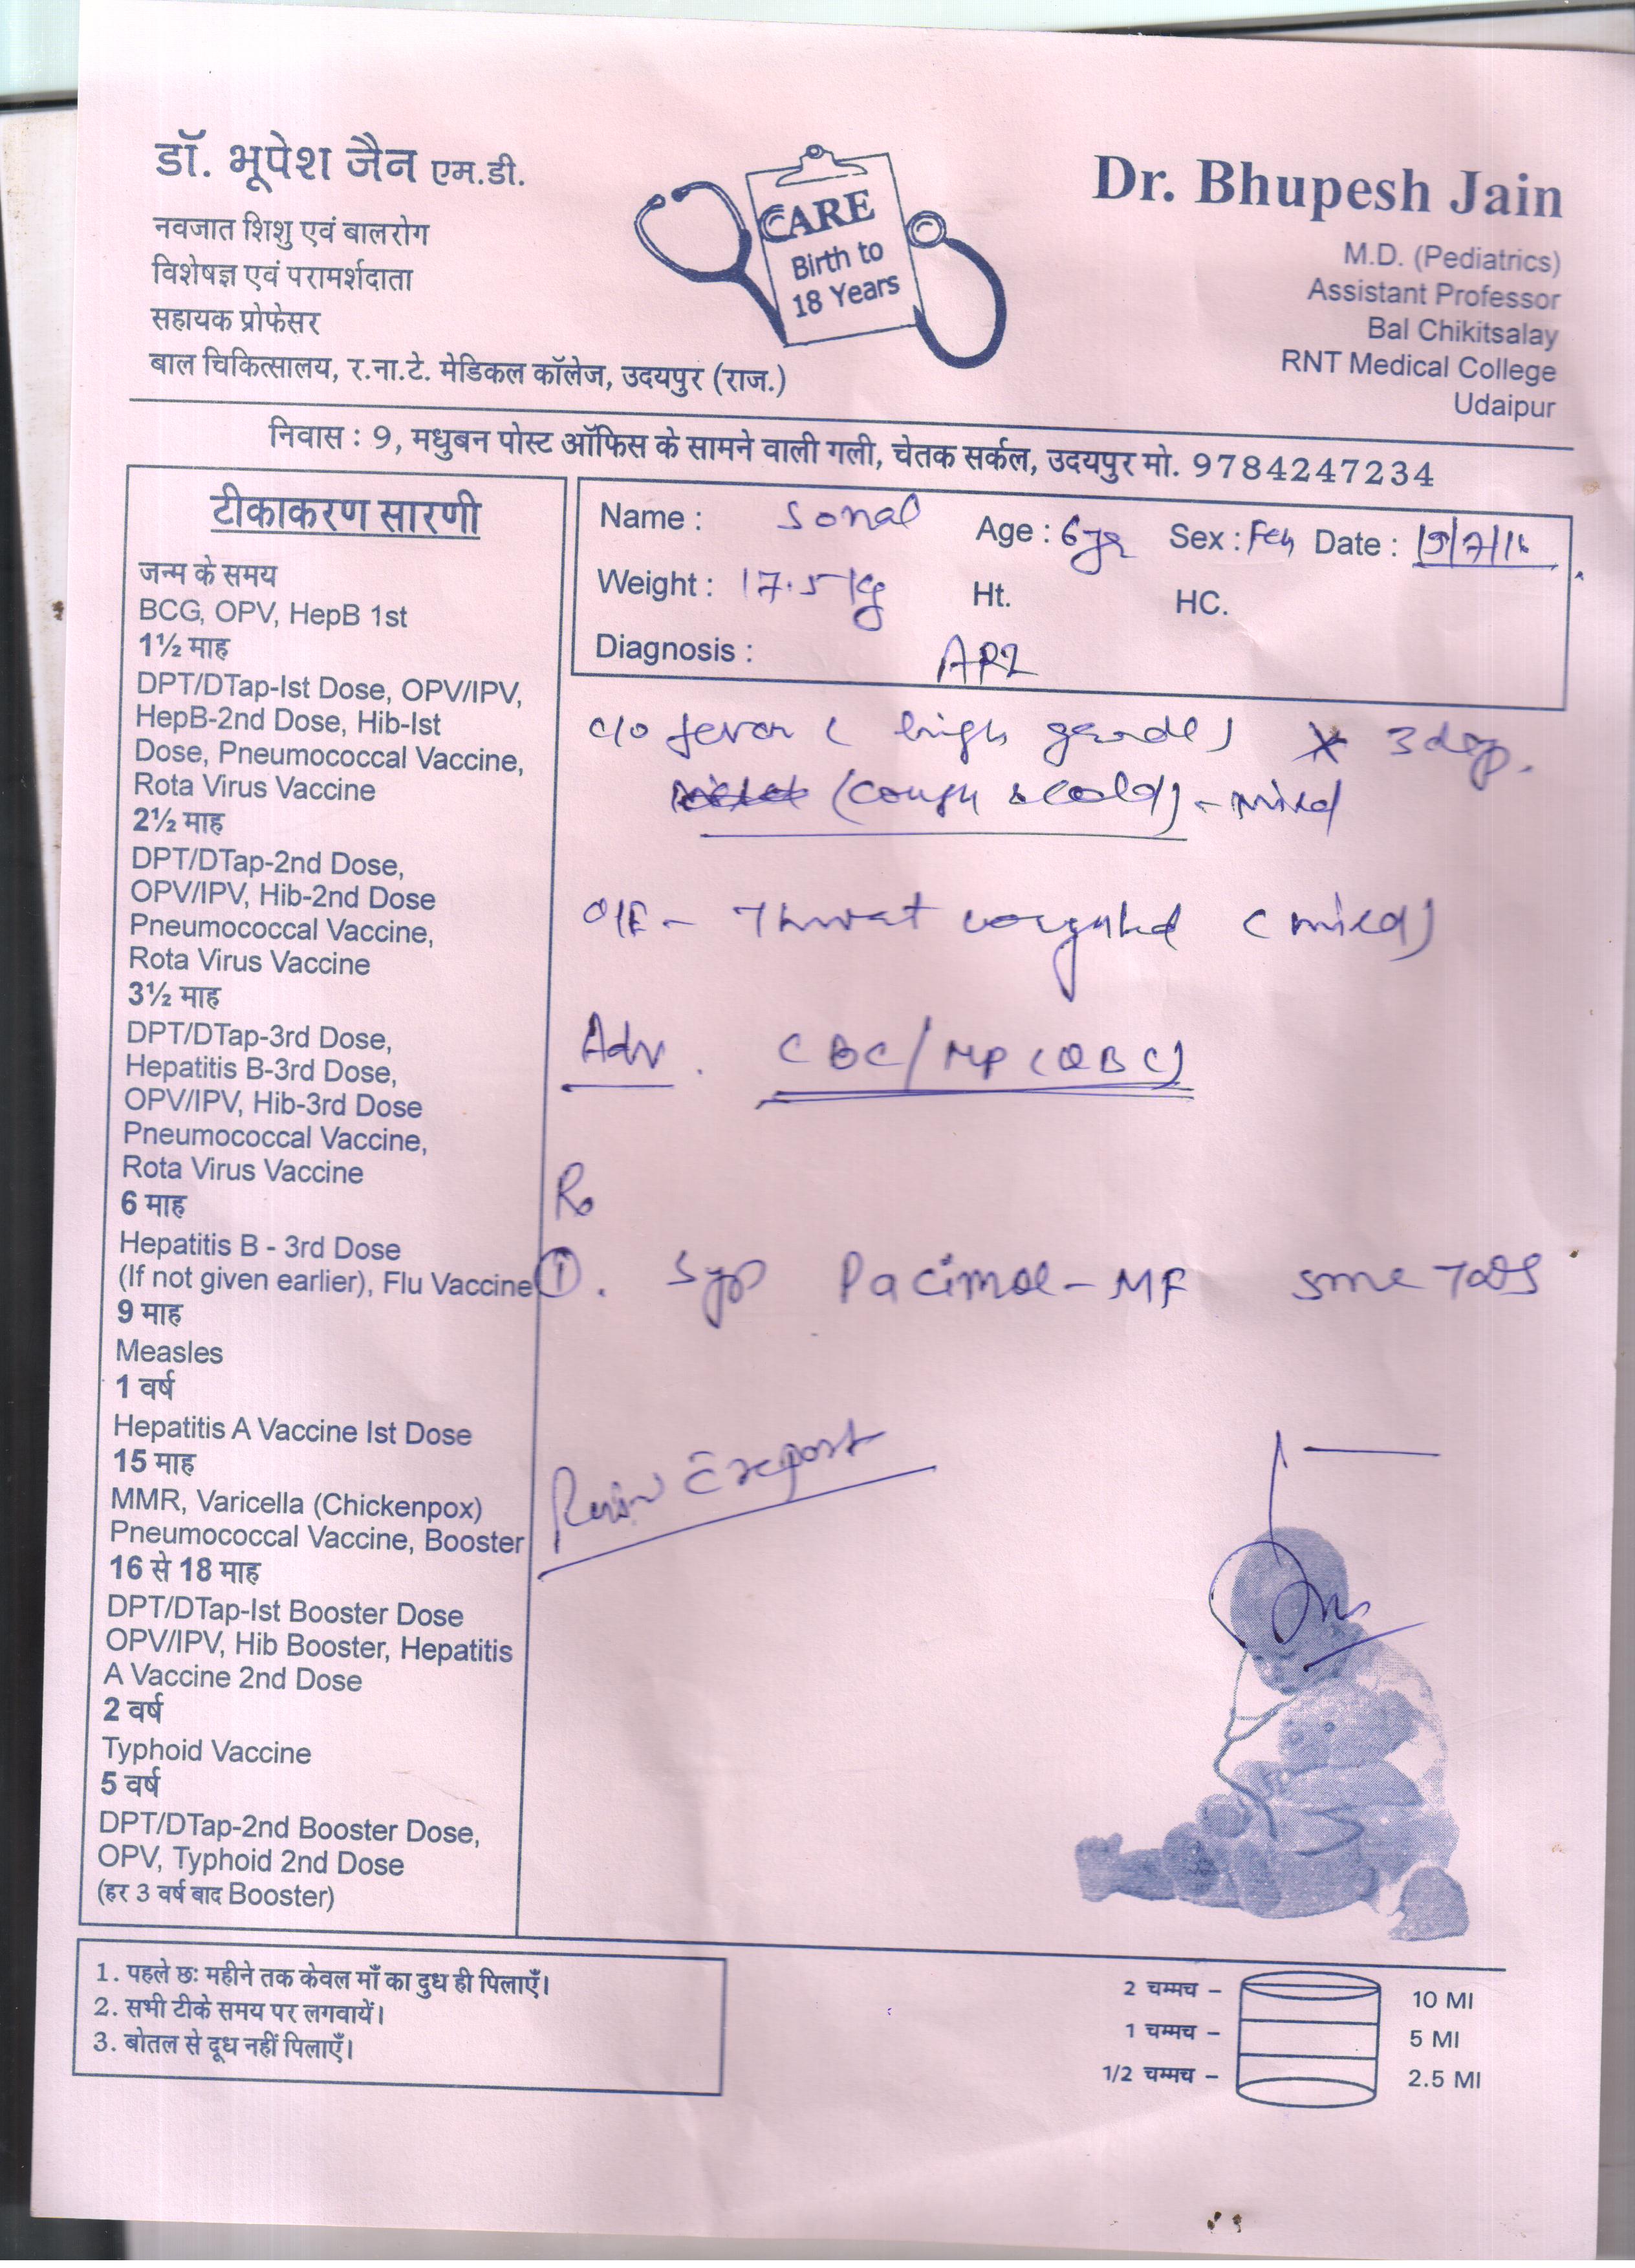 डॉ. भूपेश जैन एम.डी.
नवजात शिशु एवं बालरोग
विशेषज्ञ एवं परामर्शदाता
सहायक प्रोफेसर
बाल चिकित्सालय, र.ना.टे. मेडिकल कॉलेज, उदयपुर (राज.)
CARE
Birth to
18 Years
Dr. Bhupesh Jain
M.D. (Pediatrics)
Assistant Professor
Bal Chikitsalay
RNT Medical College
Udaipur
निवास : 9, मधुबन पोस्ट ऑफिस के सामने वाली गली, चेतक सर्कल, उदयपुर मो. 9784247234
टीकाकरण सारणी
जन्म के समय
BCG, OPV, HepB 1st
1½ माह
DPT/DTap-Ist Dose, OPV/IPV,
HepB-2nd Dose, Hib-Ist
Dose, Pneumococcal Vaccine,
Rota Virus Vaccine
2½ माह
DPT/DTap-2nd Dose,
OPV/IPV, Hib-2nd Dose
Pneumococcal Vaccine,
Rota Virus Vaccine
3½ माह
DPT/DTap-3rd Dose,
Hepatitis B-3rd Dose,
OPV/IPV, Hib-3rd Dose
Pneumococcal Vaccine,
Rota Virus Vaccine
6 माह
Hepatitis B - 3rd Dose
(If not given earlier), Flu Vaccine
9 माह
Measles
1 वर्ष
Hepatitis A Vaccine Ist Dose
15 माह
MMR, Varicella (Chickenpox)
Pneumococcal Vaccine, Booster
16 से 18 माह
DPT/DTap-Ist Booster Dose
OPV/IPV, Hib Booster, Hepatitis
A Vaccine 2nd Dose
2 वर्ष
Typhoid Vaccine
5 वर्ष
DPT/DTap-2nd Booster Dose,
OPV, Typhoid 2nd Dose
(हर 3 वर्ष बाद Booster)
Name : Sonal Age : 6yr Sex : Date :
Weight : 17.5 kg Ht. HC.
Diagnosis :
c/o fever ( high grade) x 3 days.
(cough & cold) - mild
O/E - Throat congested (mild)
Adv. CBC/MP (QBC)
Rx
① . Syp Pacimol-MF 5ml TDS
Review c̄ report
1. पहले छः महीने तक केवल माँ का दुध ही पिलाएँ।
2. सभी टीके समय पर लगवायें।
3. बोतल से दूध नहीं पिलाएँ।
2 चम्मच – 10 Ml
1 चम्मच – 5 Ml
1/2 चम्मच – 2.5 Ml